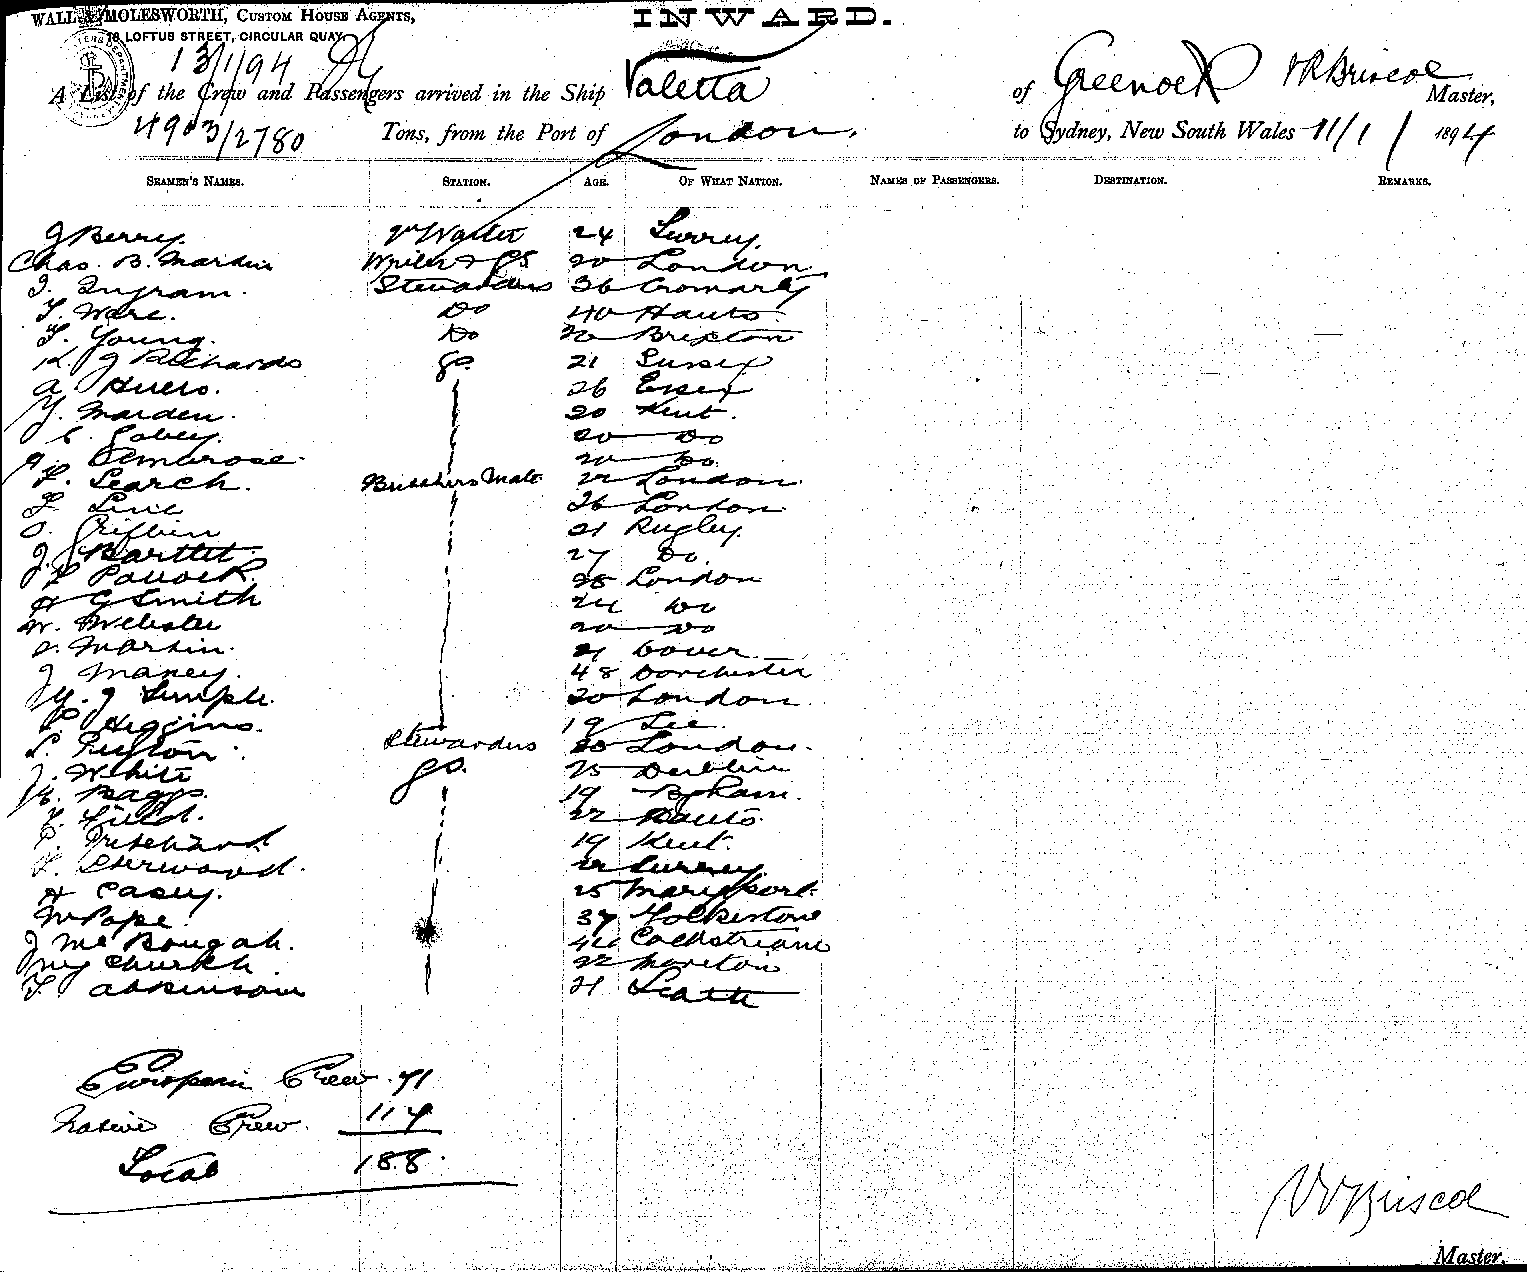 INWARD.
WALL & MOLESWORTH, CUSTOM HOUSE AGENTS,
18 LOFTUS STREET, CIRCULAR QUAY.
13/1/94
A List of the Crew and Passengers arrived in the Ship Valetta of Greenock Master,
4903/2780 Tons, from the Port of London. to Sydney, New South Wales 11/1/1894
SEAMEN'S NAMES. STATION. AGE. OF WHAT NATION. NAMES OF PASSENGERS. DESTINATION. REMARKS.
J Berry. 24 Surrey.
Chas. B. Martin 20 London
J. Ingram. Stewardess 36 Cromarty
F. Ware. Do 40 Hants.
F. Young. Do 20 Brixton
K. J Richards GS. 21 Sussex
A Huers. 26 Essex
Y. Marden. 20 Kent.
C. Gobey. 20 Do
A. Pembrose. 20 Do.
F. Search. Butchers Mate 22 London.
F. Line 26 London
O. Griffin 21 Rugley.
J. Bartlet 27 Do.
J. L Pocock. 28 London
H G Smith 24 Do
W. Webster 20 Do
Martin. 21 Dover
J Maney. 48 Dorchester
W. J Semple. 20 London.
P Higgins. 19 Lee.
Peyton. Stewards 20 London.
J. White GS. 25 Dublin
H. Baggs. 19 B,ham.
F. Field. 22 Hants.
P. Pritchard 19 Kent.
F. Sherwood. 22 Surrey.
H Casey. 25 Maryport.
W Pope 37 Folkestone
J Mc Bougah. Coldstream
Church 22 Moreton
F. Atkinson 21 Leath
European Crew. 71
Native Crew. 117
Total 188.
Briscoe
Master.